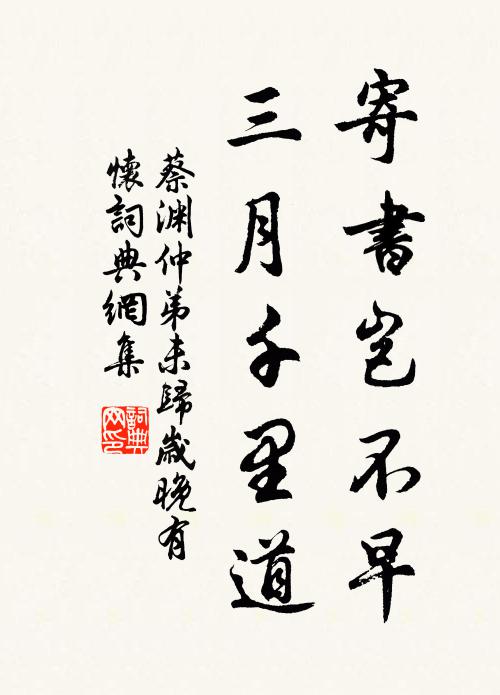 寄書豈不早
三月千里道
蔡渊仲弟未歸歲晚有
懷詞典網集
詞典
网印